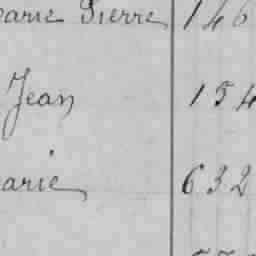 arie Pierre 146
Jean 154
arie 632